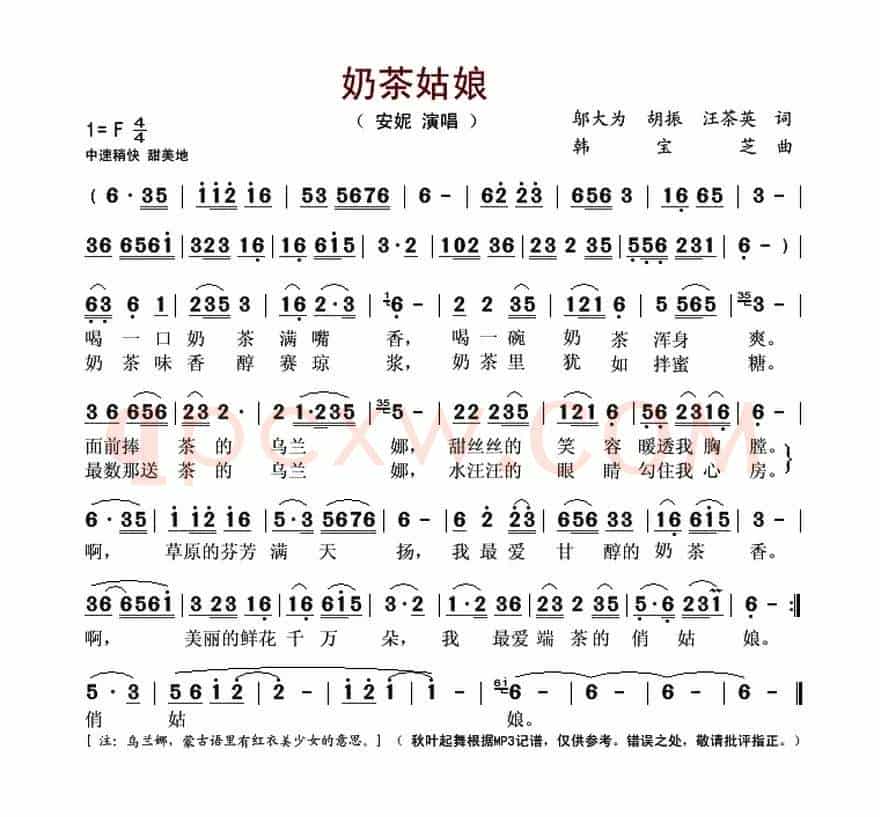 奶茶姑娘
（ 安妮 演唱 ）
邬大为 胡振 汪茶英 词
韩宝芝 曲
1= F 4/4
中速稍快 甜美地
( 6 · 35 | 112 16 | 53 5676 | 6 - | 62 23 | 656 3 | 16 65 | 3 - |
36 6561 | 323 16 | 16 615 | 3 · 2 | 102 36 | 23 2 35 | 556 231 | 6 - ) |
63 6 1 | 235 3 | 16 2·3 | 1 6 - | 2 2 35 | 121 6 | 5 565 | 35 3 - |
喝一口奶茶满嘴香，喝一碗奶茶浑身爽。
奶茶味香醇赛琼浆，奶茶里犹如拌蜜糖。
3 6 656 | 23 2 · | 2 1·235 | 35 5 - | 22 235 | 121 6 | 56 2316 | 6 - |
面前捧茶的乌兰娜，甜丝丝的笑容暖透我胸膛。
最数那送茶的乌兰娜，水汪汪的眼睛勾住我心房。
qpcxw.com
6 · 35 | 1 12 16 | 5·3 5676 | 6 - | 6 2 23 | 656 33 | 16 615 | 3 - |
啊，草原的芬芳满天扬，我最爱甘醇的奶茶香。
36 6561 | 3 23 16 | 16 615 | 3·2 | 1·2 36 | 23 2 35 | 5·6 231 | 6 - :‖
啊，美丽的鲜花千万朵，我最爱端茶的俏姑娘。
5 · 3 | 56 12 | 2 - | 12 1 | 1 - | 61 6 - | 6 - | 6 - | 6 - ‖
俏姑娘。
［ 注：乌兰娜，蒙古语里有红衣美少女的意思。］（ 秋叶起舞根据MP3记谱，仅供参考。错误之处，敬请批评指正。）